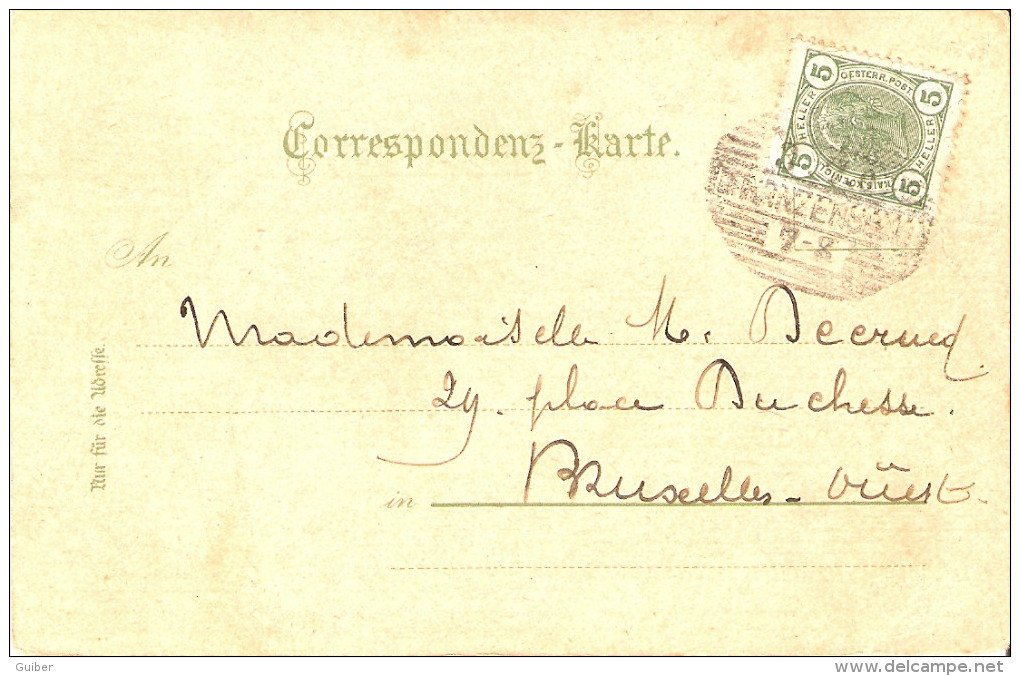 Correspondenz-Karte.
5 5
OESTERR. POST
HELLER HELLER
KAIS. KOENIGL.
5 5
FRANZENSBAD
7-8
An
Mademoiselle M.
29. place Duchesse.
Bruxelles - Ouest.
in
Nur für die Adresse.
Guiber
www.delcampe.net